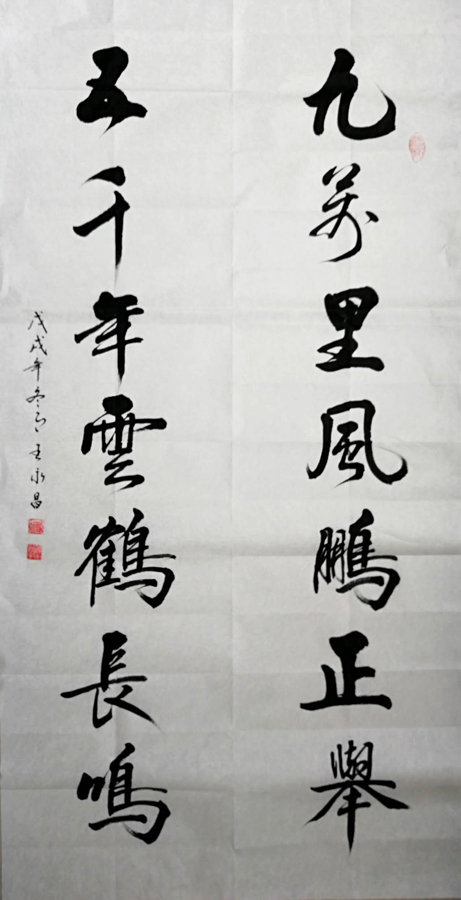 九萬里風鵬正舉
五千年雲鶴長鳴
戊戌年冬月王永昌